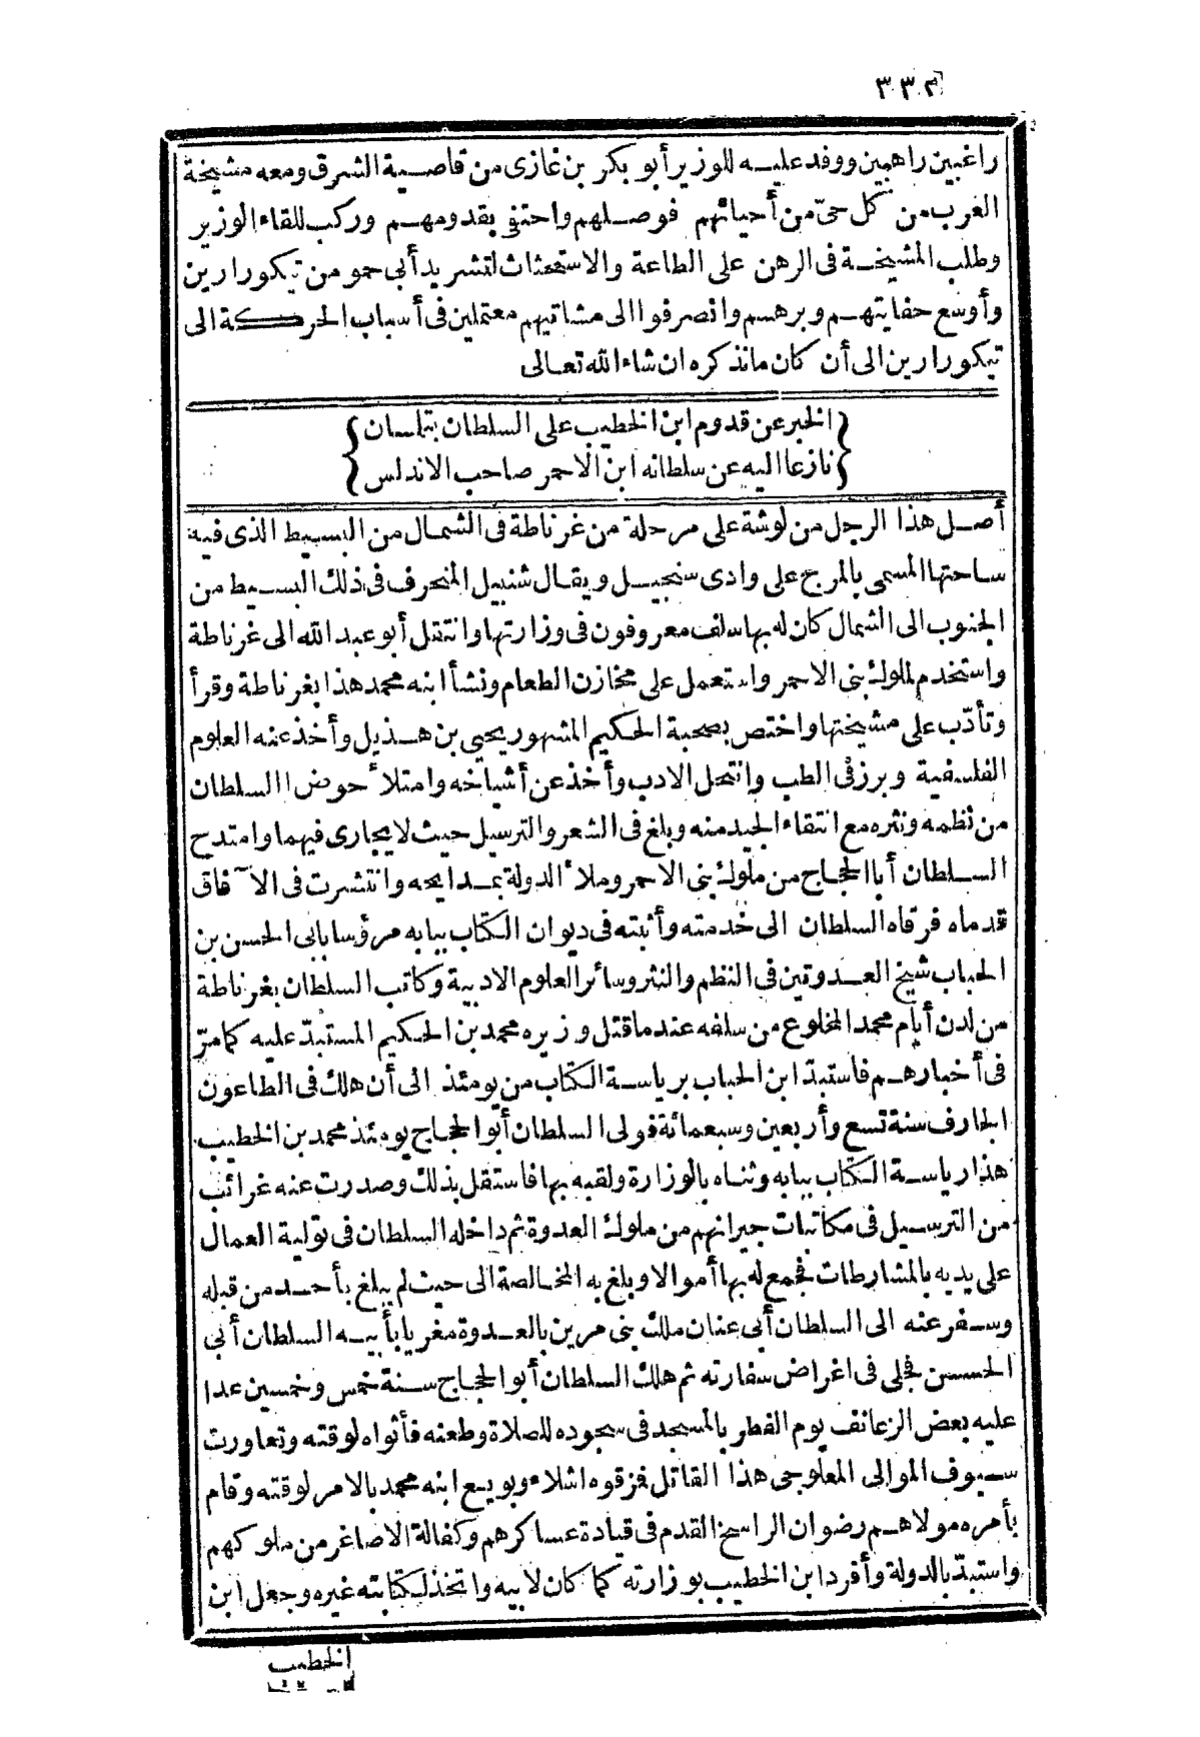 ٣٣٢
راغبين راهبين ووفد عليه للوزير أبو بكر بن غازى من قاصية الشرق ومعه مشيخة
العرب من كل حىّ من أحيائهم فوصلهم واحتفى بقدومهم وركب للقاء الوزير
وطلب المشيخة فى الرهن على الطاعة والاستحثاث لتشريد أبى حمو من تيكورارين
وأوسع حفايتهم وبرهم وانصرفوا الى مشاتيهم معتملين فى أسباب الحركة الى
تيكورارين الى أن كان ما نذكره ان شاء الله تعالى
{الخبر عن قدوم ابن الخطيب على السلطان بتلمسان}
{نازعا اليه عن سلطانه ابن الاحمر صاحب الاندلس}
أصل هذا الرجل من لوشة على مرحلة من غرناطة فى الشمال من البسيط الذى فيه
ساحتها المسمى بالمرج على وادى سنجيل ويقال شنبيل المنحرف فى ذلك البسيط من
الجنوب الى الشمال كان له بها سلف معروفون فى وزارتها وانتقل أبو عبد الله الى غرناطة
واستخدم لملوك بنى الاحمر واستعمل على مخازن الطعام ونشأ ابنه محمد هذا بغرناطة وقرأ
وتأدّب على مشيختها واختص بصحبة الحكيم المشهور يحيى بن هذيل وأخذ عنه العلوم
الفلسفية وبرز فى الطب وانتحل الادب وأخذ عن أشياخه وامتلأ حوض السلطان
من نظمه ونثره مع انتقاء الجيد منه وبلغ فى الشعر والترسيل حيث لا يجارى فيهما وامتدح
السلطان أبا الحجاج من ملوك بنى الاحمر وملأ الدولة بمدايحه وانتشرت فى الآفاق
قدماه فرقاه السلطان الى خدمته وأثبته فى ديوان الكتاب ببابه مرؤسا بابى الحسن بن
الحباب شيخ العدوتين فى النظم والنثر وسائر العلوم الادبية وكاتب السلطان بغرناطة
من لدن أيام محمد المخلوع من سلفه عند ما قتل وزيره محمد بن الحكيم المستبدّ عليه كما مرّ
فى أخبارهم فاستبدّ ابن الحباب برياسة الكتاب من يومئذ الى أن هلك فى الطاعون
الجارف سنة تسع وأربعين وسبعمائة فولى السلطان أبو الحجاج يومئذ محمد بن الخطيب
هذا رياسة الكتاب ببابه وثناه بالوزارة ولقبه بها فاستقل بذلك وصدرت عنه غرائب
من الترسيل فى مكاتبات جيرانهم من ملوك العدوة ثم داخله السلطان فى تولية العمال
على يديه بالمشارطات فجمع له بها أموالا وبلغ به المخالصة الى حيث لم يبلغ بأحد من قبله
وسفر عنه الى السلطان أبى عنان ملك بنى مرين بالعدوة مغريا بأبيه السلطان أبى
الحسن فجلى فى اغراض سفارته ثم هلك السلطان أبو الحجاج سنة خمس وخمسين عدا
عليه بعض الزعانف يوم الفطر بالمسجد فى سجوده للصلاة وطعنه فأثواه لوقته وتعاورت
سيوف الموالى المعلوجى هذا القاتل فمزقوه اشلاء وبويع ابنه محمد بالامر لوقته وقام
بأمره مولاهم رضوان الراسخ القدم فى قيادة عساكرهم وكفالة الاصاغر من ملوكهم
واستبدّ بالدولة وأفرد ابن الخطيب بوزارته كما كان لابيه واتخذ لكتابته غيره وجعل ابن
الخطيب